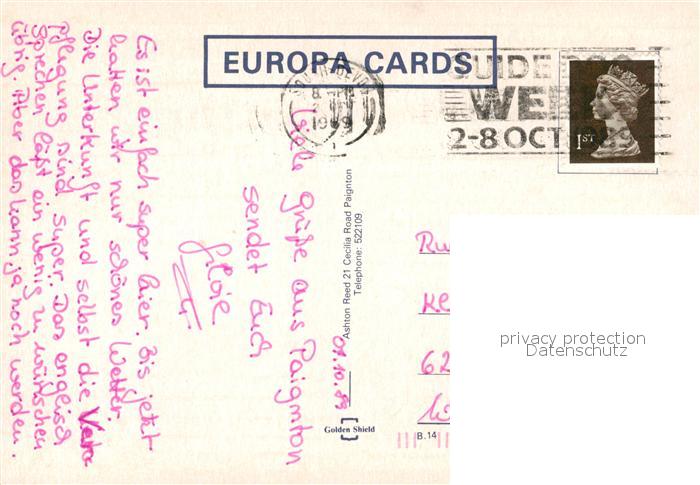 EUROPA CARDS
SOUTH DEVON
1989
GUIDE DOG
WEEK
2-8 OCT
1ST
Viele Grüße aus Paignton
sendet Euch
Es ist einfach super hier. Bis jetzt
hatten wir nur schönes Wetter.
Die Unterkunft und selbst die Verp
pflegung sind super. Das englisch
sprechen läßt ein wenig zu wünschen
übrig. Aber das kann ja noch werden.
Ashton Reed 21 Cecilia Road Paignton
Telephone: 522109
01.10.89
Golden Shield
B.14
Ru
Kl
62
privacy protection
Datenschutz